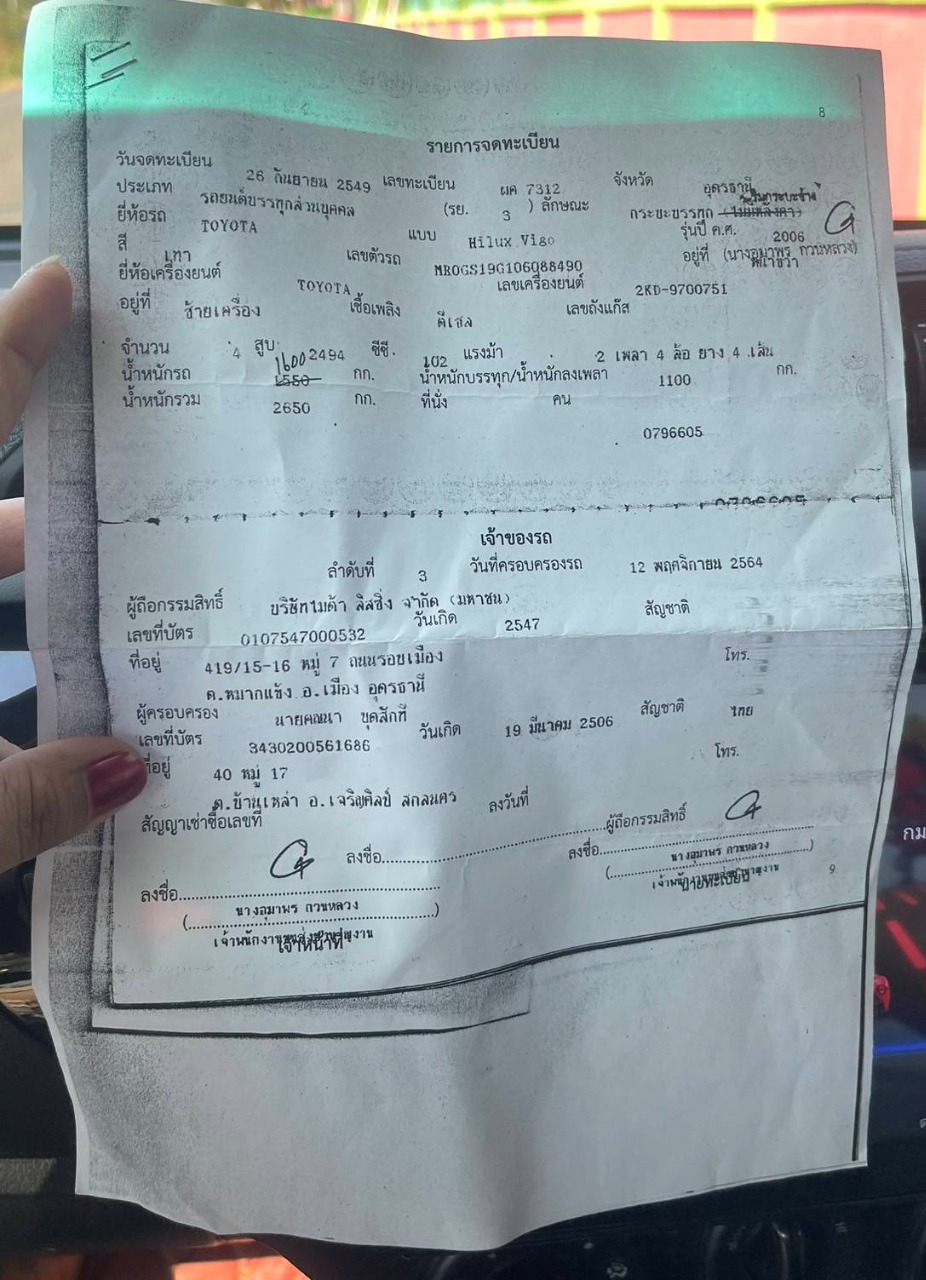 8
รายการจดทะเบียน
วันจดทะเบียน 26 กันยายน 2549 เลขทะเบียน ผค 7312 จังหวัด อุดรธานี
ประเภท รถยนต์บรรทุกส่วนบุคคล (รย. 3 ) ลักษณะ กระบะบรรทุก (ไม่มีหลังคา)
ยี่ห้อรถ TOYOTA แบบ Hilux Vigo รุ่นปี ค.ศ. 2006
สี เทา เลขตัวรถ MR0GS19G106088490 อยู่ที่ (นางอุมาพร กวนหลวง)
ยี่ห้อเครื่องยนต์ TOYOTA เลขเครื่องยนต์ 2KD-9700751
อยู่ที่ ซ้ายเครื่อง เชื้อเพลิง ดีเซล เลขถังแก๊ส
จำนวน 4 สูบ 2494 ซีซี. 102 แรงม้า 2 เพลา 4 ล้อ ยาง 4 เส้น
น้ำหนักรถ 1600 1550 กก. น้ำหนักบรรทุก/น้ำหนักลงเพลา 1100 กก.
น้ำหนักรวม 2650 กก. ที่นั่ง คน
0796605
เจ้าของรถ
ลำดับที่ 3 วันที่ครอบครองรถ 12 พฤศจิกายน 2564
ผู้ถือกรรมสิทธิ์ บริษัทไมด้า ลิสซิ่ง จำกัด (มหาชน)
เลขที่บัตร 0107547000532 วันเกิด 2547 สัญชาติ
ที่อยู่ 419/15-16 หมู่ 7 ถนนรอบเมือง โทร.
ต.หมากแข้ง อ.เมือง อุดรธานี
ผู้ครอบครอง นายคณนา บุดสักที วันเกิด 19 มีนาคม 2506 สัญชาติ ไทย
เลขที่บัตร 3430200561686
ที่อยู่ 40 หมู่ 17 โทร.
ต.บ้านเหล่า อ.เจริญศิลป์ สกลนคร
สัญญาเช่าซื้อเลขที่ ลงวันที่ ผู้ถือกรรมสิทธิ์
ลงชื่อ ลงชื่อ
ลงชื่อ (นางอุมาพร กวนหลวง)
(นางอุมาพร กวนหลวง) นายทะเบียน 9
เจ้าหน้าที่
กม